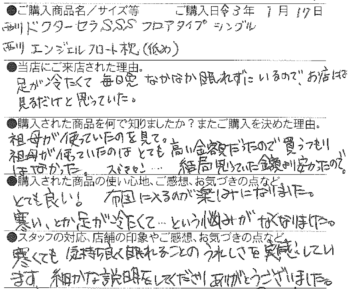 ●ご購入商品名／サイズ等 ご購入日令3年1月17日
西川ドクターセラSSS フロアタイプ シングル
西川 エンジェルフロート枕(低め)
●当店にご来店された理由。
足が冷たくて毎日悪なかなか眠れずにいるので、お店は
見るだけと思っていた。
●購入された商品を何で知りましたか？またご購入を決めた理由。
祖母が使っていたのを見て。
祖母が使っていたのはとても高い金額だったので買うつもり
はなかった。スミマセン… 結局思っていた金額より安かったので。
●購入された商品の使い心地、ご感想、お気づきの点など。
とても良い！ 布団に入るのが楽しみになりました。
寒い、とか足が冷たくて…という悩みがなくなりました。
●スタッフの対応、店舗の印象やご感想、お気づきの点など。
寒くても気持ち良く眠れることのうれしさを実感してい
ます。細かな説明をしてくださりありがとうございました。